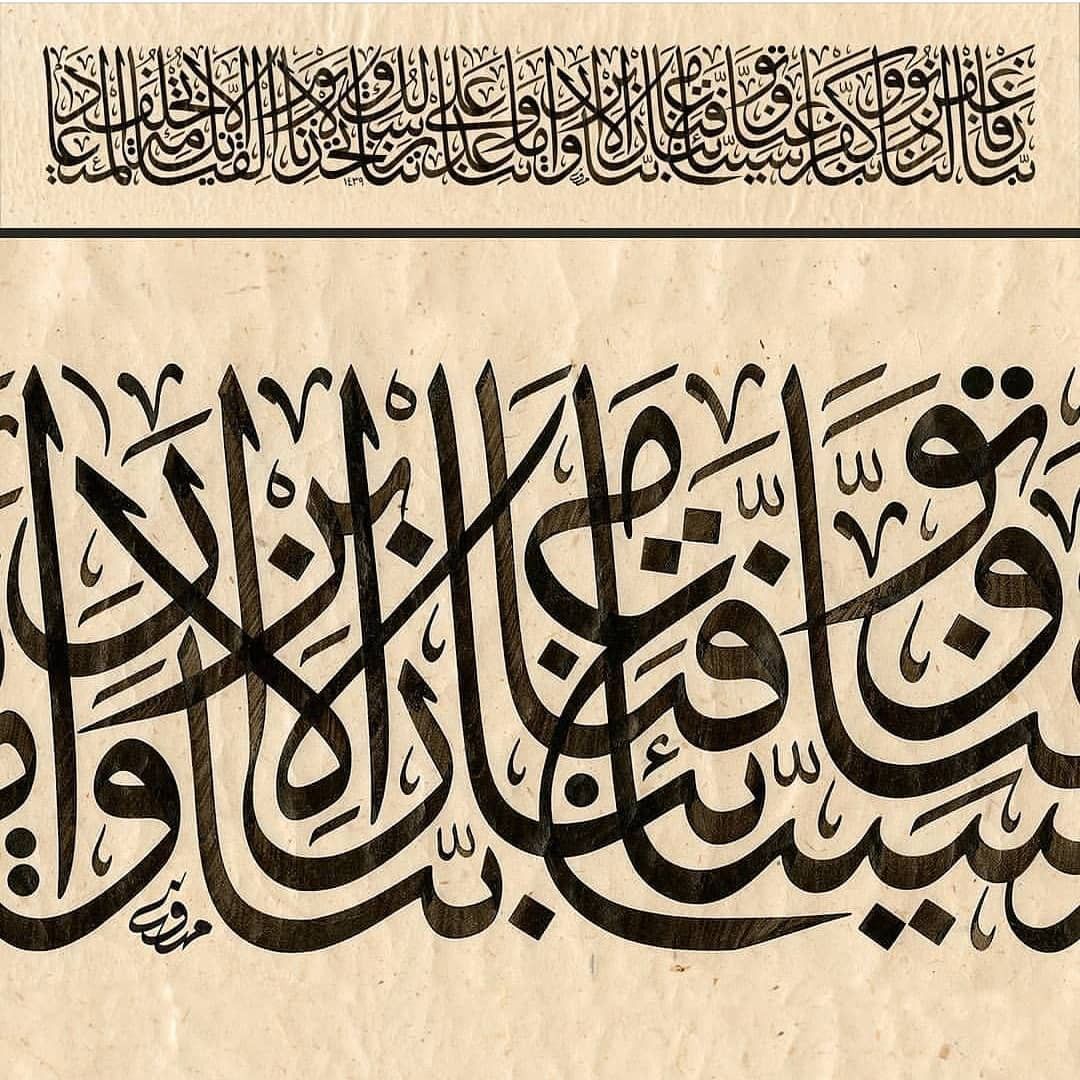 ربنا فاغفر لنا ذنوبنا وكفر عنا سيئاتنا وتوفنا مع الأبرار ربنا وآتنا ما وعدتنا على رسلك ولا تخزنا يوم القيامة إنك لا تخلف الميعاد
١٤٣٩
عنا سيئاتنا وتوفنا مع الأبرار ربنا وآ